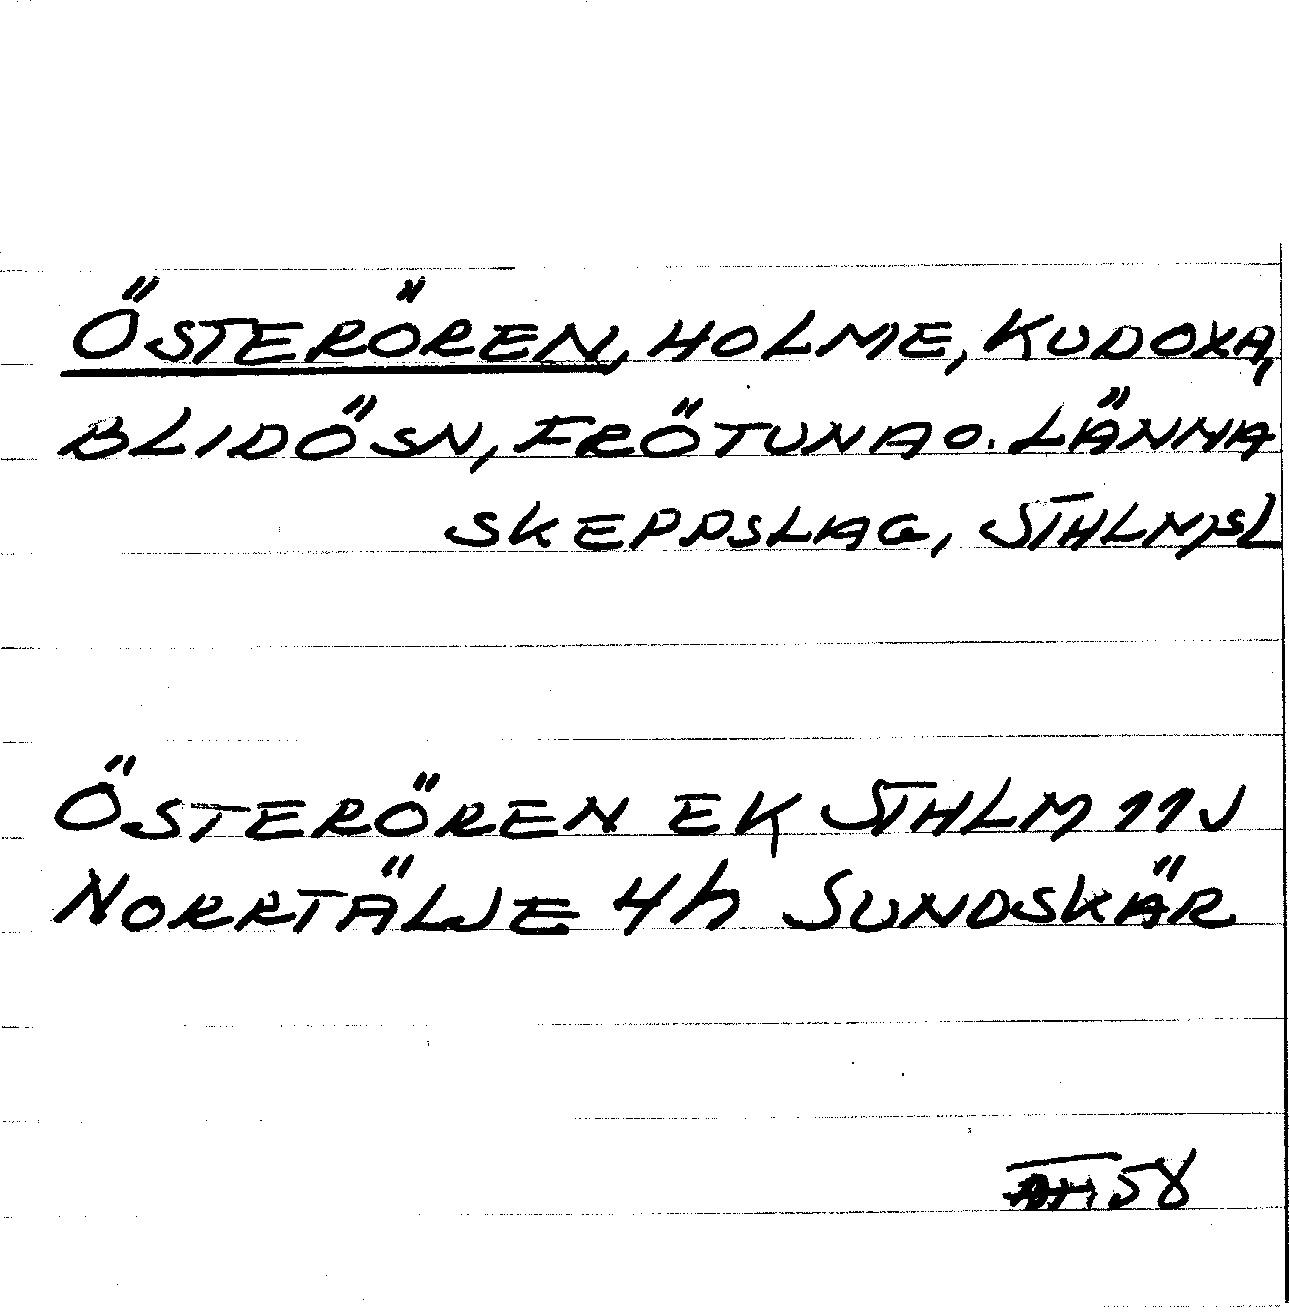 ÖSTERÖREN, HOLME, KUDOXA,
BLIDÖ SN, FRÖTUNA O. LÄNNA
SKEPPSLAG, STHLMSL
ÖSTERÖREN EK STHLM 11J
NORRTÄLJE 4h SUNDSKÄR
AH 58